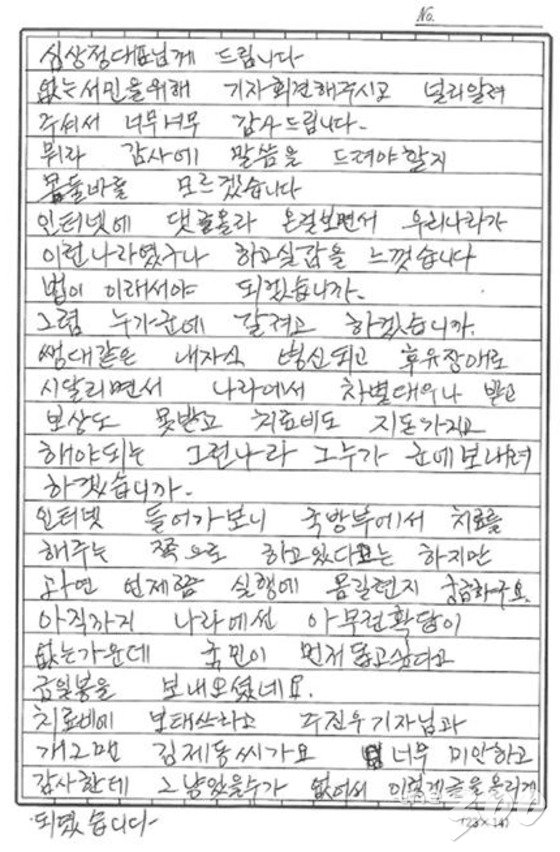 No.
심상정대표님께 드립니다
없는서민을위해 기자회견해주시고 널리알려
주셔서 너무너무 감사드립니다.
뭐라 감사에 말씀을 드려야할지
몸둘바를 모르겠습니다
인터넷에 댓글올라 온걸보면서 우리나라가
이런나라였구나 하고실감을 느꼈습니다
법이 이래서야 되겠습니까.
그럼 누가군에 갈려고 하겠습니까.
쌩대같은 내자식 병신되고 후유장애로
시달리면서 나라에서 차별대우나 받고
보상도 못받고 치료비도 지돈가지고
해야되는 그런나라 그누가 군에보내려
하겠습니까.
인터넷 들어가보니 국방부에서 치료를
해주는 쪽으로 하고있다고는 하지만
과연 언제쯤 실행에 옴길런지 궁금하구요.
아직까지 나라에선 아무런확답이
없는가운데 국민이 먼저돕고싶다고
금일봉을 보내오셨네요.
치료비에 보태쓰라고 주진우기자님과
개그맨 김제동씨가요 너무 미안하고
감사한데 그냥있을수가 없어서 이렇게글을올리게
되였습니다-
(23×14)